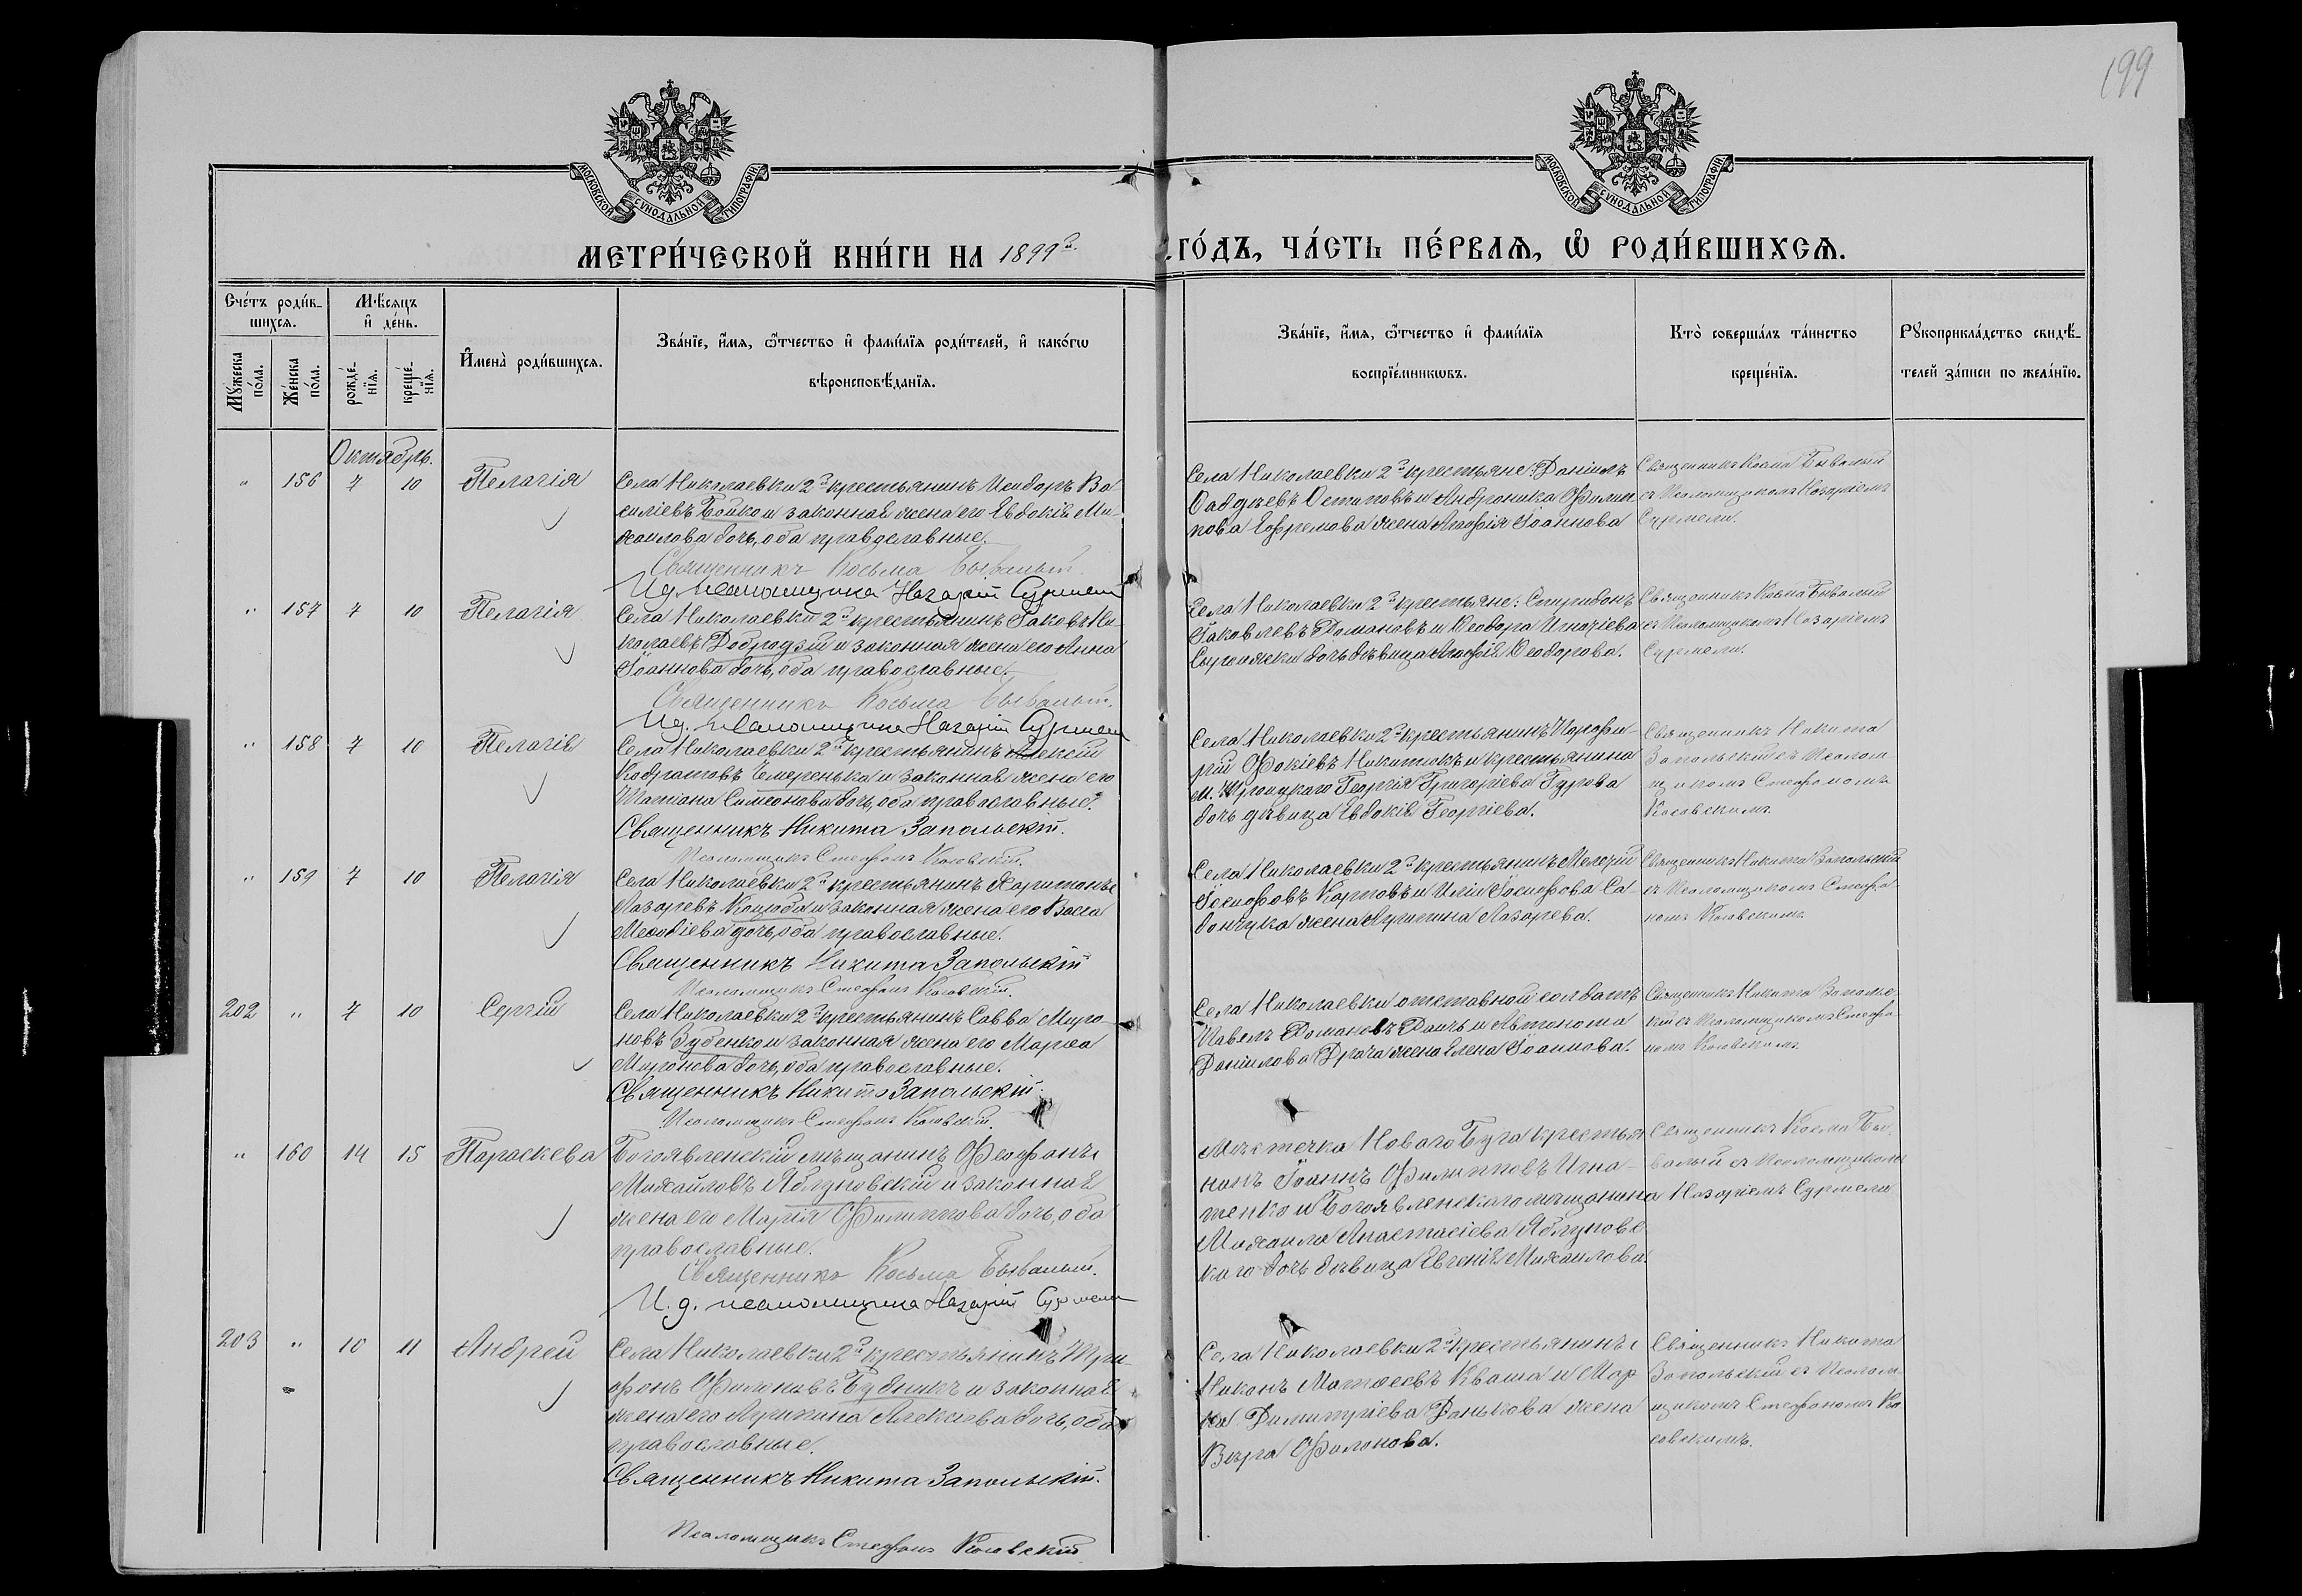 199
МОСКОВСКОЙ СУНОДАЛЬНОЙ ТИПОГРАФІИ
МОСКОВСКОЙ СУНОДАЛЬНОЙ ТИПОГРАФІИ
МЕТРИ́ЧЕСКОЙ КНИ́ГИ НА 1899 г.
ГО́ДЪ, ЧА́СТЬ ПЕ́РВАѦ, Ѽ РОДИ́ВШИХСѦ.
Сче́тъ роди́в-
шихсѧ.
Мѣ́сяцъ
и҆ де́нь.
Мꙋ́жеска
по́ла.
Же́нска
по́ла.
рожде́-
нїѧ.
креще́-
нїѧ.
И҆мена̀ роди́вшихсѧ.
Зва́нїе, и҆́мѧ, ѻ҆́тчество и҆ фами́лїѧ роди́телей, и҆ како́гѡ
вѣроисповѣ́данїѧ.
Зва́нїе, и҆́мѧ, ѻ҆́тчество и҆ фами́лїѧ
воспрїе́мникѡвъ.
Кто̀ соверша́лъ та́инство
креще́нїѧ.
Рꙋкоприкла́дство свидѣ́-
телей за́писи по жела́нїю.
Октябрь.
" 156 7 10 Пелагія
Села Николаевки 2й крестьянинъ Исидоръ Ва-
силіевъ Бойко и законная жена его Евдокія Ми-
хаилова дочь, оба православные.
Священникъ Косьма Бывалый.
И. д. псаломщика Назарій Сурмели
Села Николаевки 2й крестьяне: Даніилъ
Фаддѣевъ Остаповъ и Андроника Филип-
пова Ефремова жена Агафія Іоаннова
Священникъ Косма Бывалый
съ Псаломщикомъ Назаріемъ
Сурмели.
" 157 7 10 Пелагія
Села Николаевки 2й крестьянинъ Іаковъ Ни-
колаевъ Добродзій и законная жена его Анна
Іоаннова дочь, оба православные.
Священникъ Косьма Бывалый.
И. д. псаломщика Назарій Сурмели
Села Николаевки 2й крестьяне: Спиридонъ
Іаковлевъ Домановъ и Ѳеодора Игнатіева
Сыроижки дочь дѣвица Агафія Ѳеодорова.
Священникъ Косма Бывалый
съ Псаломщикомъ Назаріемъ
Сурмели.
" 158 7 10 Пелагія
Села Николаевки 2й крестьянинъ Алексій
Кодратовъ Чмеренька и законная жена его
Татіана Симеонова дочь, оба православные.
Священникъ Никита Запольскій.
Псаломщикъ Стефанъ Косовскій.
Села Николаевки 2й крестьянинъ Порфи-
рій Фокіевъ Никитюкъ и крестьянина
м. Троицкаго Георгія Григоріева Гурова
дочь дѣвица Евдокія Георгіева.
Священникъ Никита
Запольскій съ Псалом-
щикомъ Стефаномъ
Косовскимъ.
" 159 7 10 Пелагія
Села Николаевки 2й крестьянинъ Харитонъ
Лазаревъ Коцюба и законная жена его Васса
Меѳодіева дочь, оба православные.
Священникъ Никита Запольскій
Псаломщикъ Стефанъ Косовскій.
Села Николаевки 2й крестьянинъ Мелетій
Іосифовъ Карповъ и Иліи Іосифова Са-
дончука жена Агрипина Лазарева.
Священникъ Никита Запольскій
съ Псаломщикомъ Стефа-
номъ Косовскимъ.
202 " 7 10 Сергій
Села Николаевки 2й крестьянинъ Савва Миро-
новъ Зубенко и законная жена его Марѳа
Миронова дочь, оба православные.
Священникъ Никита Запольскій.
Псаломщикъ Стефанъ Косовскій.
Села Николаевки отставной солдатъ
Павелъ Романовъ Дончъ и Автонома
Даніилова Драча жена Елена Іоаннова.
Священникъ Никита Запольс-
кій съ Псаломщикомъ Стефа-
номъ Косовскимъ.
" 160 14 15 Параскева
Богоявленскій мѣщанинъ Ѳеофанъ
Михайловъ Яблуновскій и законная
жена его Марія Филиппова дочь, оба
православные.
Священникъ Косьма Бывалый.
И. д. псаломщика Назарій Сурмели
Мѣстечка Новаго Буга крестья-
нинъ Іоаннъ Филипповъ Игна-
тенко и Богоявленскаго мѣщанина
Михаила Анастасіева Яблуновс-
каго дочь дѣвица Евгенія Михаилова.
Священникъ Косма Бы-
валый съ Псаломщикомъ
Назаріемъ Сурмели
203 " 10 11 Андрей
Села Николаевки 2й крестьянинъ Три-
фонъ Филоновъ Будникъ и законная
жена его Агрипина Алексіева дочь, оба
православные.
Священникъ Никита Запольскій.
Псаломщикъ Стефанъ Косовскій
Села Николаевки 2й крестьянинъ
Никонъ Матѳеевъ Кваша и Мар-
ка Димитріева Данькова жена
Вѣра Филонова.
Священникъ Никита
Запольскій съ Псалом-
щикомъ Стефаномъ Ко-
совскимъ.